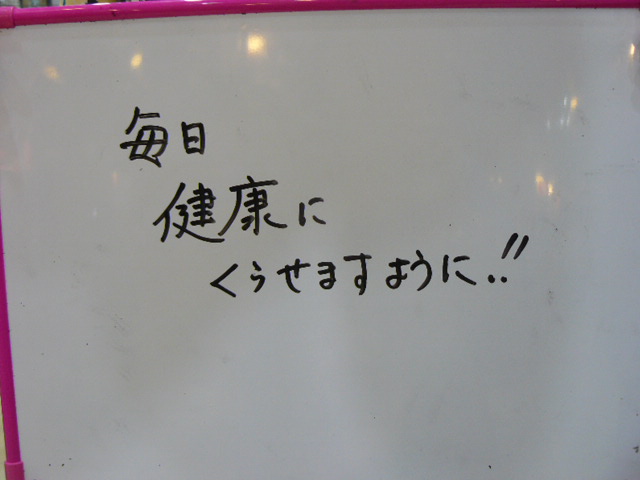 毎日
健康に
くらせますように!!